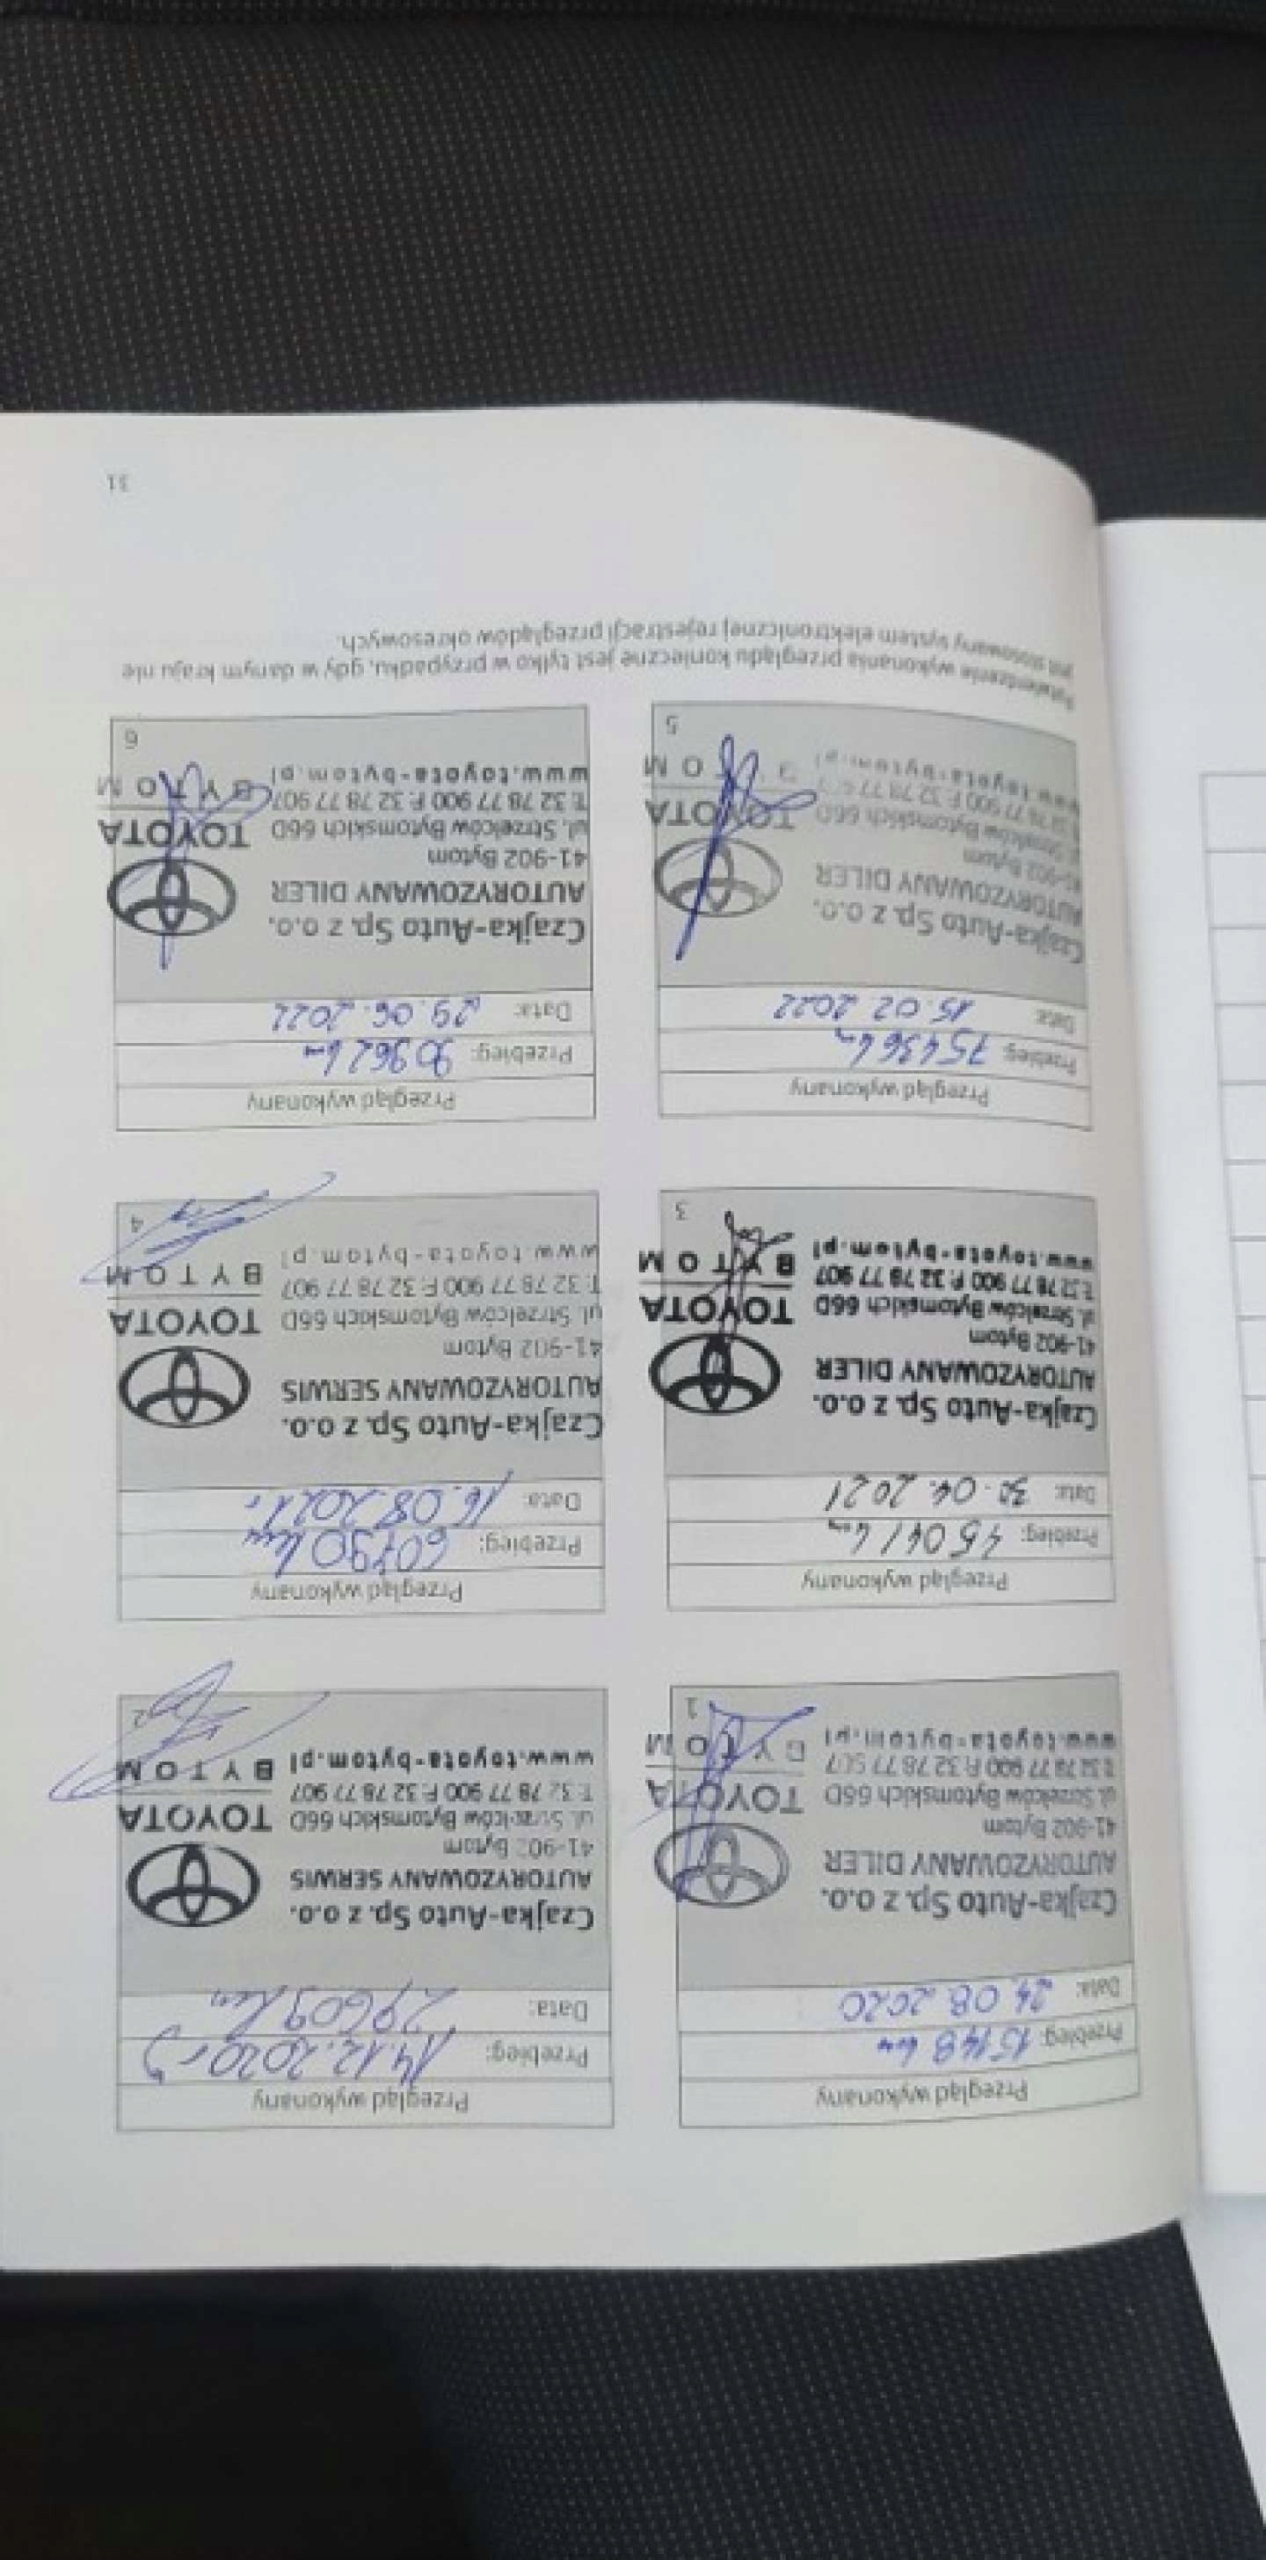 Przegląd wykonany
Przebieg: 15148 km
Data: 24.08.2020
Czajka-Auto Sp. z o.o.
AUTORYZOWANY DILER
41-902 Bytom
ul. Strzelców Bytomskich 66D
T: 32 78 77 900 F: 32 78 77 907
www.toyota-bytom.pl
TOYOTA
BYTOM
1
Przegląd wykonany
Przebieg: 14.12.2020r
Data: 29609 km
Czajka-Auto Sp. z o.o.
AUTORYZOWANY SERWIS
41-902 Bytom
ul. Strzelców Bytomskich 66D
T: 32 78 77 900 F: 32 78 77 907
www.toyota-bytom.pl
TOYOTA
BYTOM
2
Przegląd wykonany
Przebieg: 45041 km
Data: 30.04.2021
Czajka-Auto Sp. z o.o.
AUTORYZOWANY DILER
41-902 Bytom
ul. Strzelców Bytomskich 66D
T: 32 78 77 900 F: 32 78 77 907
www.toyota-bytom.pl
TOYOTA
BYTOM
3
Przegląd wykonany
Przebieg: 60790 km
Data: 16.08.2021r
Czajka-Auto Sp. z o.o.
AUTORYZOWANY SERWIS
41-902 Bytom
ul. Strzelców Bytomskich 66D
T: 32 78 77 900 F: 32 78 77 907
www.toyota-bytom.pl
TOYOTA
BYTOM
4
Przegląd wykonany
Przebieg: 75436 km
Data: 15.02.2022
Czajka-Auto Sp. z o.o.
AUTORYZOWANY DILER
41-902 Bytom
ul. Strzelców Bytomskich 66D
T: 32 78 77 900 F: 32 78 77 907
www.toyota-bytom.pl
TOYOTA
BYTOM
5
Przegląd wykonany
Przebieg: 90962 km
Data: 29.06.2022
Czajka-Auto Sp. z o.o.
AUTORYZOWANY DILER
41-902 Bytom
ul. Strzelców Bytomskich 66D
T: 32 78 77 900 F: 32 78 77 907
www.toyota-bytom.pl
TOYOTA
BYTOM
6
Potwierdzenie wykonania przeglądu konieczne jest tylko w przypadku, gdy w danym kraju nie
jest stosowany system elektronicznej rejestracji przeglądów okresowych.
31